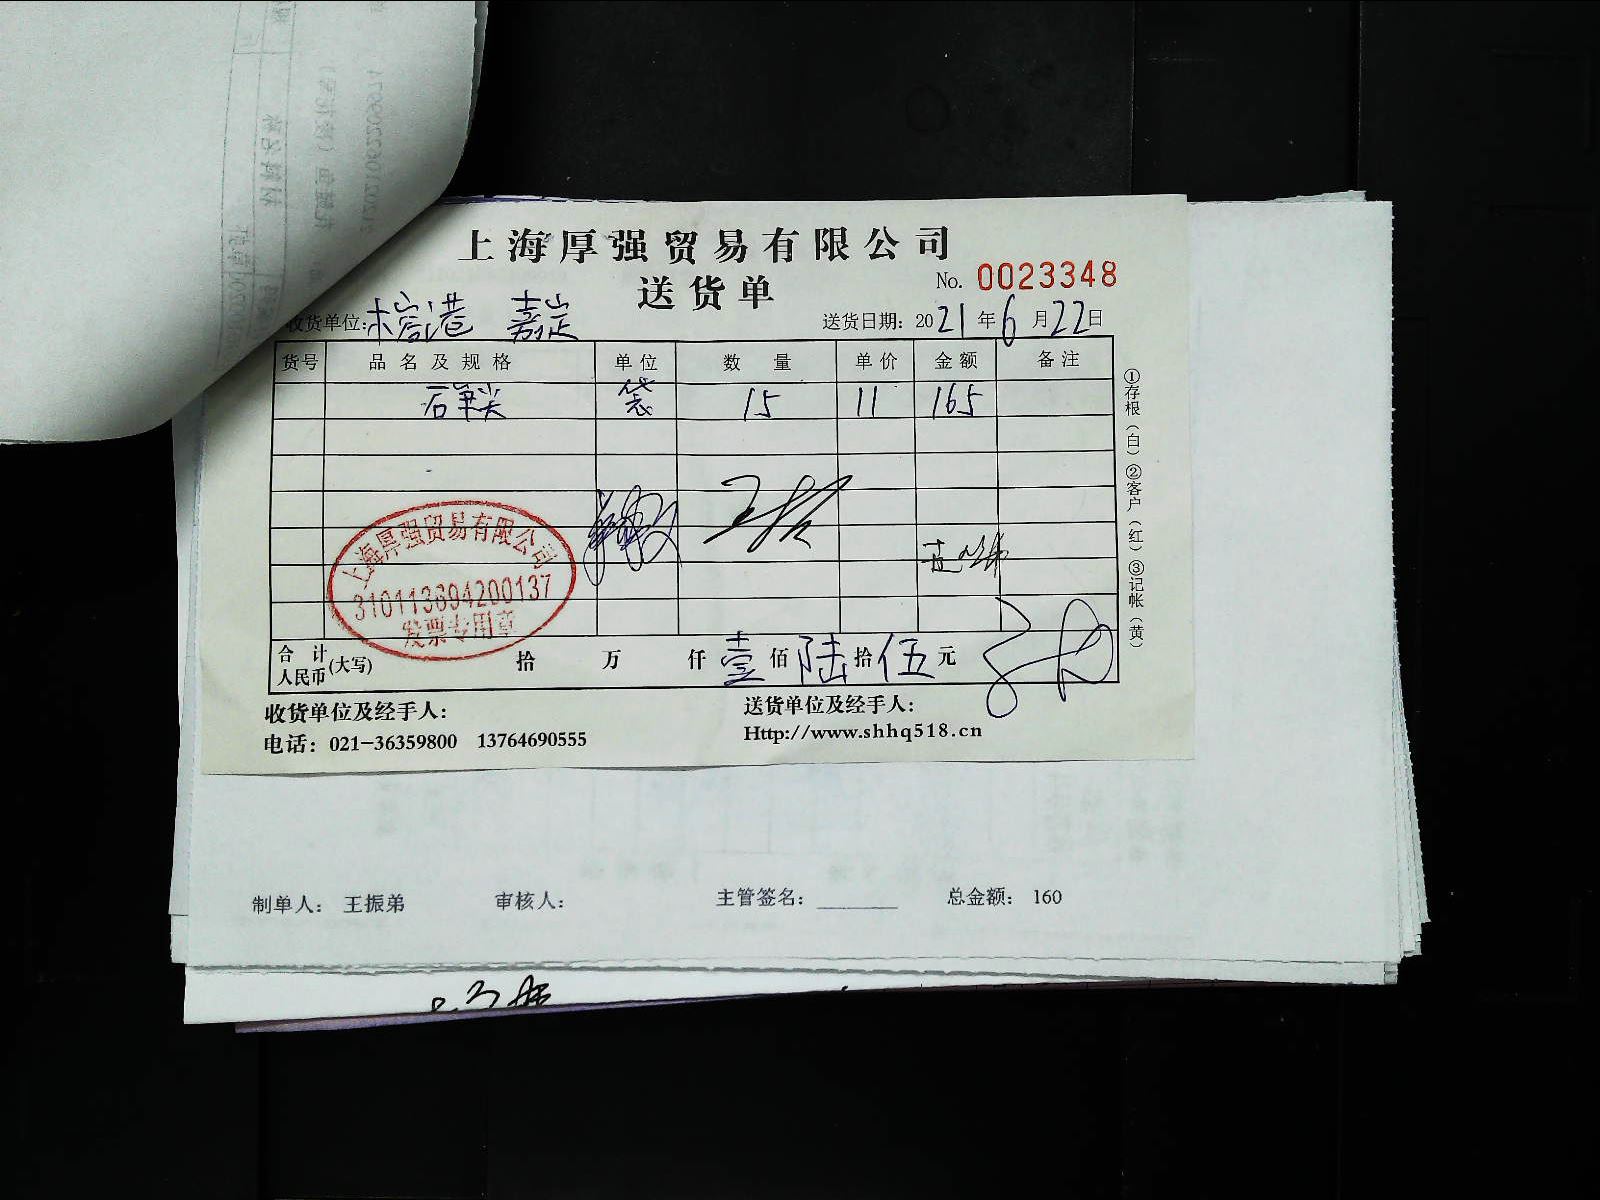 上海厚强贸易有限公司
送货单
No. 0023348
收货单位: 嘉定
送货日期: 2021年6月22日
货号 品名及规格 单位 数量 单价 金额 备注
袋 15 11 165
上海厚强贸易有限公司
310113694200137
发票专用章
合计人民币(大写) 拾 万 仟 壹佰 陆拾 伍元
收货单位及经手人:
送货单位及经手人:
电话: 021-36359800 13764690555
Http://www.shhq518.cn
①存根(白)②客户(红)③记帐(黄)
制单人: 王振弟 审核人: 主管签名: 总金额: 160